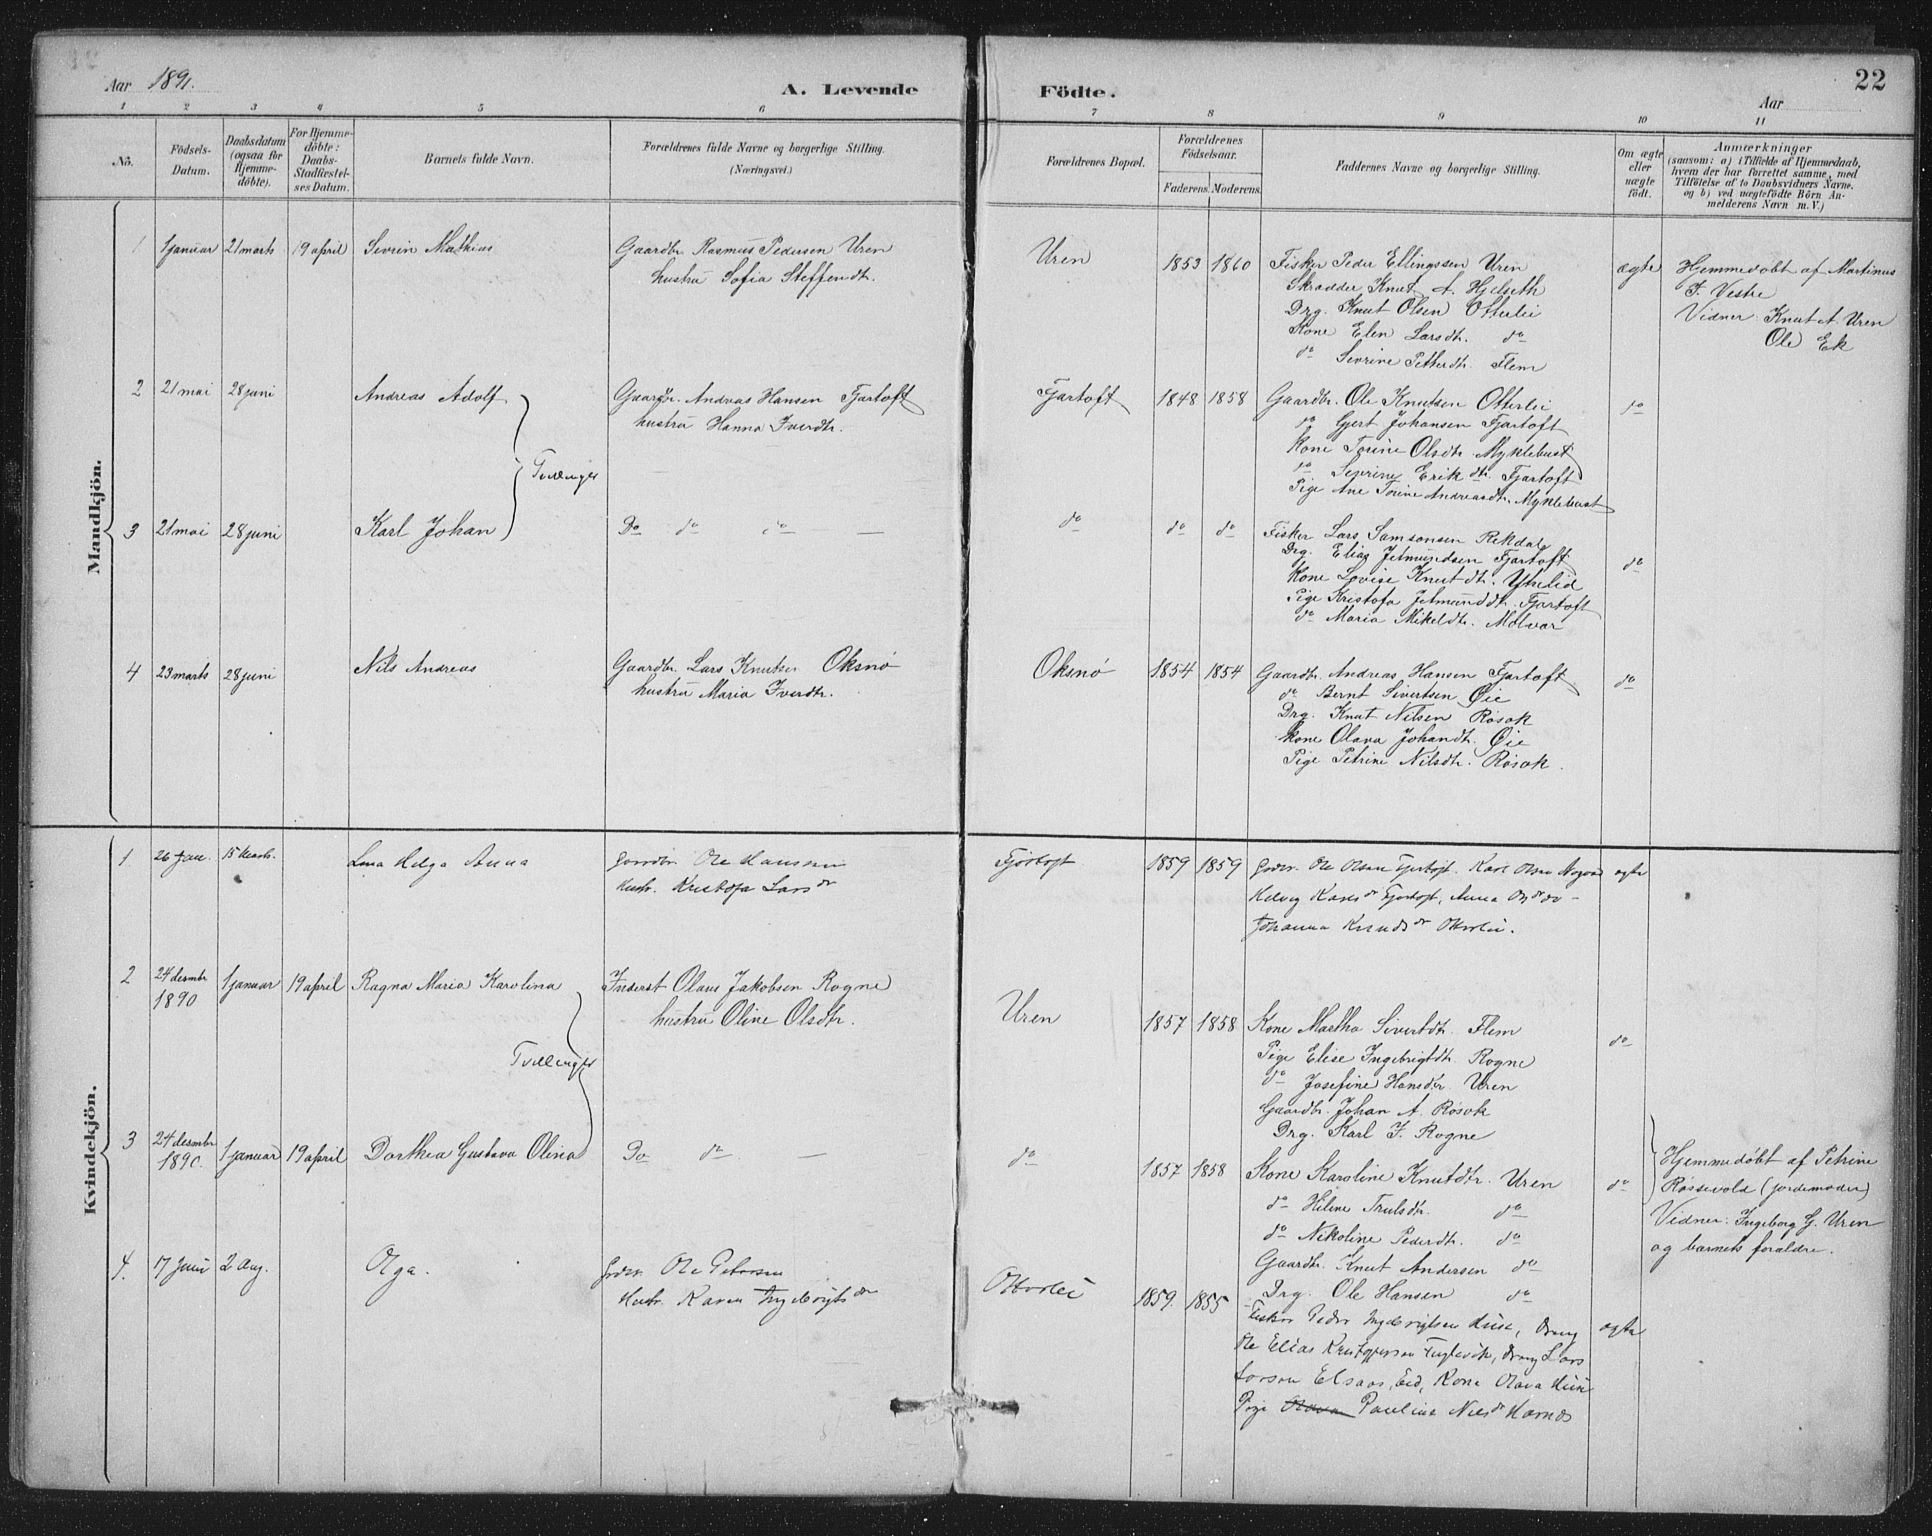 Aar 1891.
A. Levende Födte.
22
Aar
1 2 3 4 5 6 7 8 9 10 11
No.
Födsels-Datum.
Daabsdatum (ogsaa for Hjemme-döbte).
For Hjemme-döbte: Daabs-Stadfæstel-ses Datum.
Barnets fulde Navn.
Forældrenes fulde Navne og borgerlige Stilling. (Næringsvei.)
Forældrenes Bopæl.
Forældrenes Födselsaar.
Faderens. Moderens.
Faddernes Navne og borgerlige Stilling.
Om ægte eller uægte födt.
Anmærkninger
(saasom: a) i Tilfælde af Hjemmedaab,
hvem der har forrettet samme, med
Tilföielse af to Daabsvidners Navne.
og b) ved uægtefödte Börn An-
melderens Navn m. V.)
Mandkjön.
1 1 januar 21 marts 19 april Sevrin Mathias
Gaardbr Rasmus Pedersen Uren
hustru Sofia Steffendt.
Uren 1853 1860
Fisker Peder Ellingssen Uren
Skradder Knut A. Hjelseth
Drg. Knut Olsen Otterlei
Kone Elen Larsdtr. do
do Sevrine Petterdtr. Flem
ægte
Hjemmedøbt af Martinus
J. Vestre
Vidner Knut A. Uren
Ole Ek
2 21 mai 28 juni Andreas Adolf
Gaardbr. Andreas Hansen Fjærtoft
hustru Hanna Iverdtr.
Fjærtoft 1848 1858
Gaardbr. Ole Knutsen Otterlei
do Gjert Johansen Fjærtoft
Kone Torine Olsdtr. Myklebust
do Severine Erikdtr. Fjærtoft
Pige Ane Torine Andreasdtr. Myklebust
do
Tvillinger
3 21 mai 28 juni Karl Johan
Do do do —
do do do
Fisker Lars Samsonsen Rekdal
Drg. Elias Jetmundsen Fjærtoft
Kone Lovise Knutdtr. Ykslid
Pige Kristofa Jetmunddtr. Fjærtoft
do Maria Mikeldtr. Malvær
do
4 23 marts 28 juni Nils Andreas
Gaardbr. Lars Knutsen Oksnø
hustru Maria Iverdtr.
Oksnø 1854 1854
Gaardbr. Andreas Hansen Fjærtoft
do Bernt Sivertsen Øie
Drg. Knut Nilsen Røsok
Kone Olava Johandtr. Øie
Pige Petrine Nilsdtr. Røsok.
do
Kvindekjön.
1 26 Jan. 15 Marts. Lina Helga Anna
Gaardbr. Ole Hanssen
Hustr. Kristofa Larsdr
Fjørtoft 1859 1859
Gbr. Ole Olsen Fjørtoft. Karl Olsen
Helvig Karlsdr Fjørtoft, Anna do —
Johanna Knudsdr Otterlei.
ægte
2 24 desmbr 1890 1 januar 19 april Ragna Maria Karolina
Inderst Olaus Jakobsen Rogne
hustru Oline Olsdtr.
Uren 1857 1858
Kone Martha Sivertdtr. Flem
Pige Elise Ingebrigtdtr. Rogne
do Josefine Hansdtr. Uren
Gaardbr. Johan A. Røsok
Drg. Karl J. Rogne
do
Tvillinger
3 24 desmbr 1890. 1 januar 19 april Dorthea Gustava Olina
Do do —
do 1857 1858
Kone Karoline Knutdtr. Uren
do Hiline Trulsdtr. do
do Nikoline Pederdtr. do
Gaardbr. Knut Andersen do
Drg. Ole Hansen do
do
Hjemmedøbt af Petrine
Røssevold (jordemoder)
Vidner: Ingeborg G. Uren
og barnets foraldre.
4. 17 Juni 2 Aug. Olga.
Ole Petersen
Hustr. Karen Ingebrigtsdr
Otterlei 1859. 1855
Fisker Peder Ingebrigtsen Huse, Dreng
Ole Elias Kristoffersen Fuglevik, Dreng Lars
Larsen Elsaas, Eid, Kone Olava Huse
Pige Pauline Nilsdr Harnes
ægte